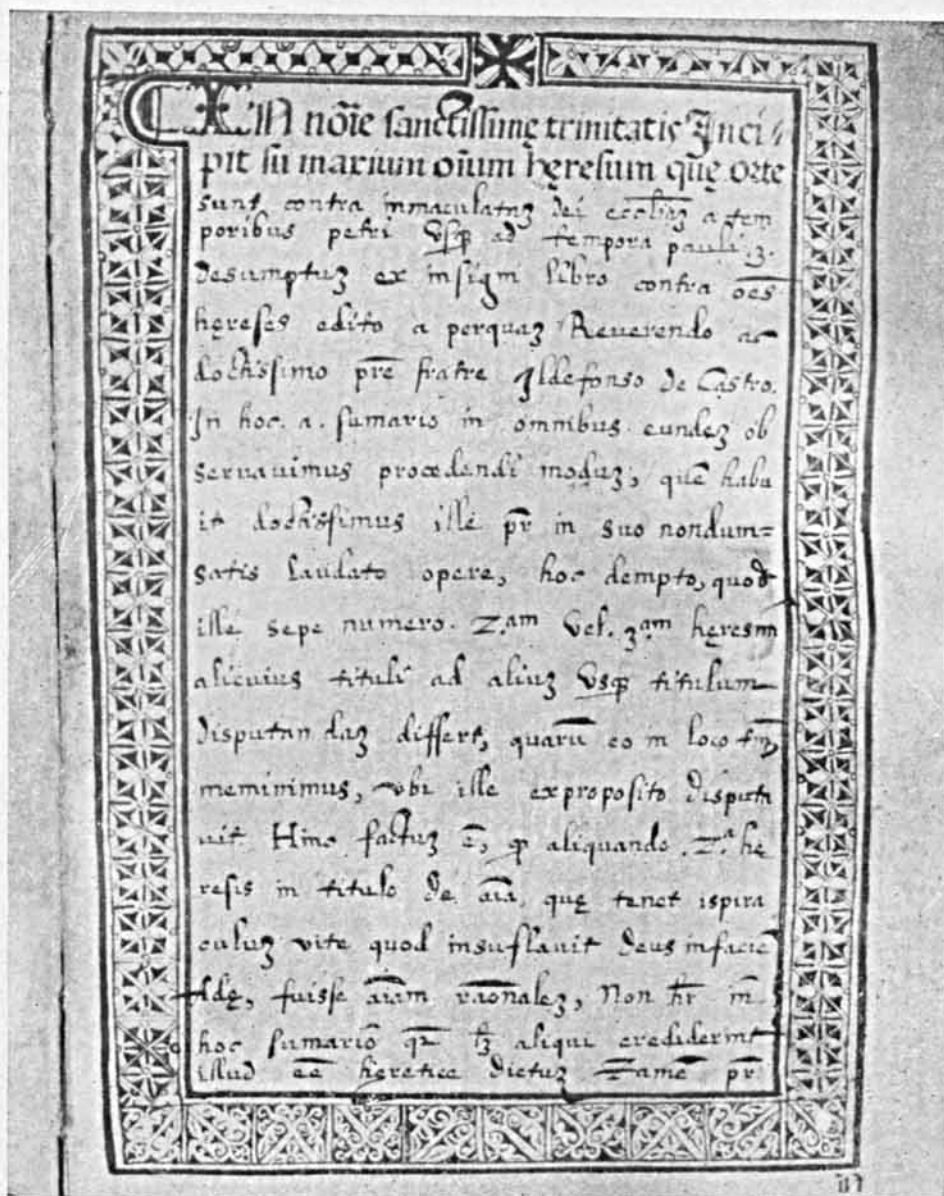 IN nōīe sanctissimę trinitatis Inci-
pit su marium oīum hęresum quę orte
sunt contra inmaculataȝ dei eccłiaȝ a tem
poribus petri Vsqȝ ad tempora pauli .3.
desumptuȝ ex insigni libro contra oēs
hęreses edito a perquaȝ Reverendo ac
doctissimo prē fratre Ildefonso de Castro.
In hoc. a. sumario in omnibus eundeȝ ob
servauimus procedendi moduȝ, quē habu
it doctissimus ille pr̄ in suo nondum=
satis laudato opere, hoc dempto, quod
ille sepe numero. 2.am Vel. 3.am hęresim
alicuius tituli ad aliuȝ Vsqȝ titulum
disputan daȝ differt, quarū eo in loco tm̄
meminimus, vbi ille exproposito disputa
uit. Hinc factuȝ ē, qȝ aliquando .2.a he
resis in titulo de aīa, quę tenet ispira
culuȝ vite quod insuflauit Deus infaciē
Adę, fuisse aīam rāonaleȝ, Non hr̄ in
hoc sumariō qȝ lȝ aliqui crediderint
illud eē hęretice dictuȝ Tamē pr̄